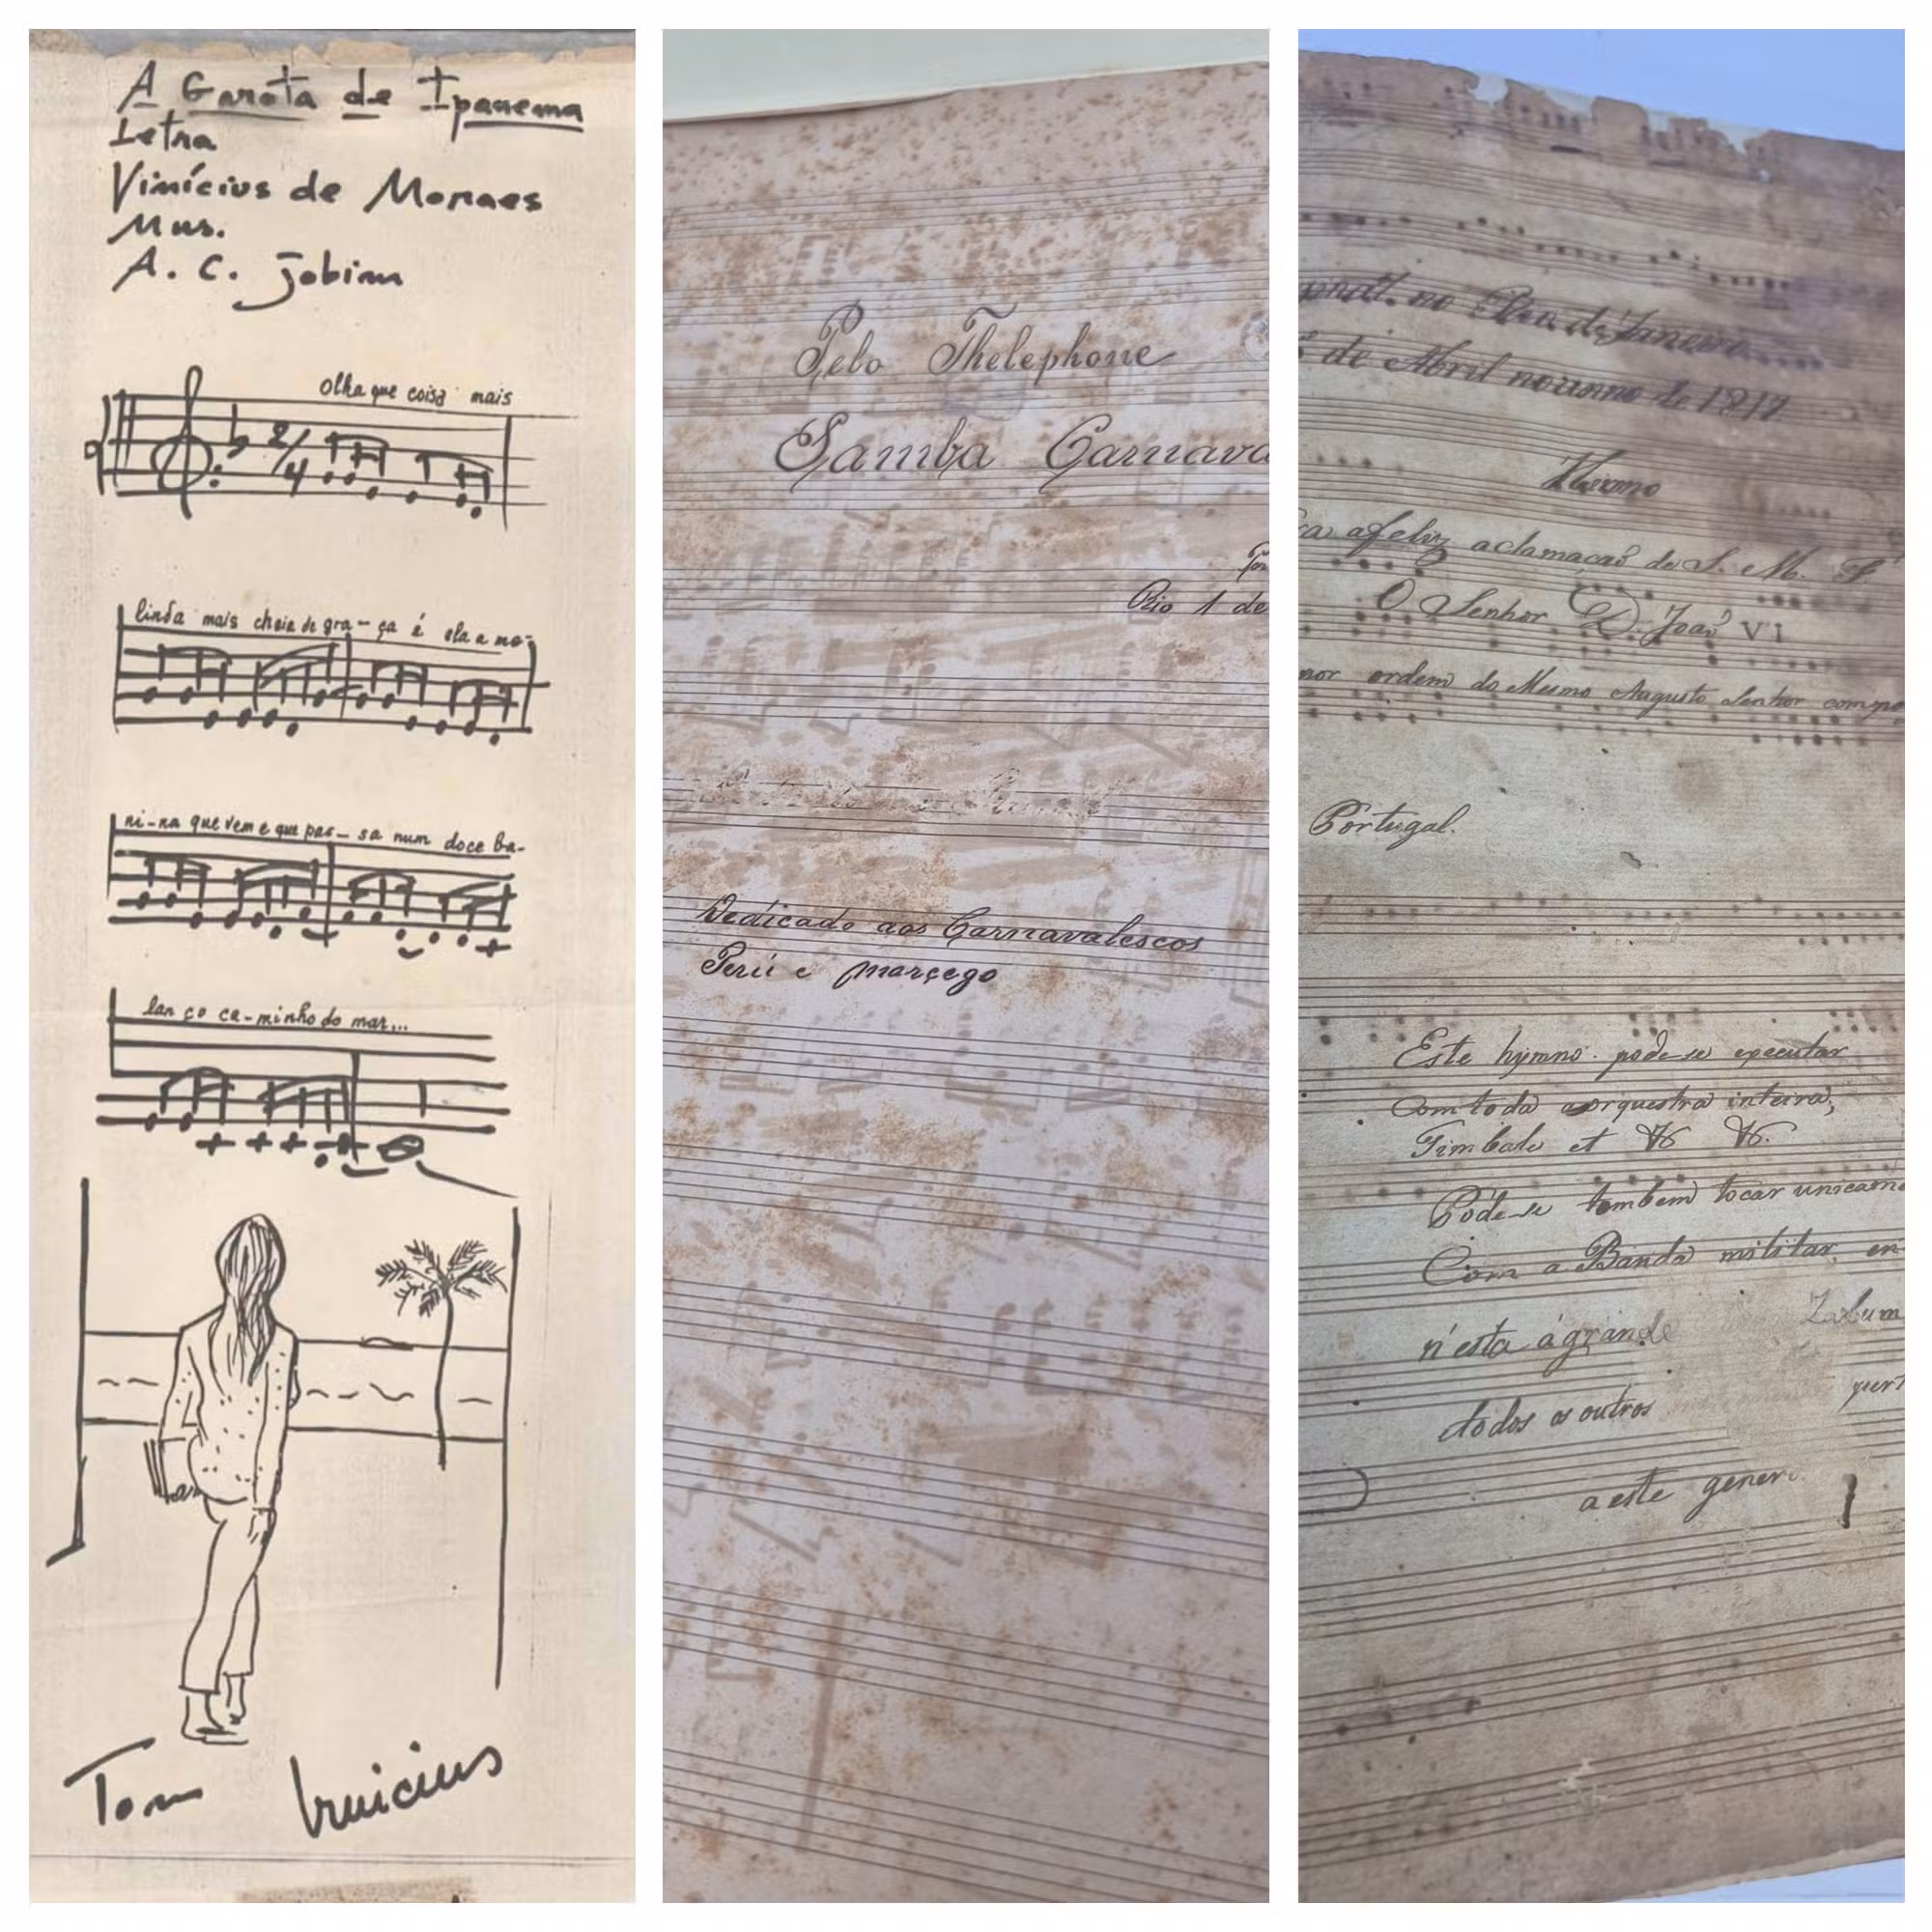 A Garota de Ipanema
Letra
Vinícius de Moraes
Mus.
A. C. Jobim
Olha que coisa mais
2/4
linda mais cheia de gra- ça é ela a me-
ni-na que vem e que pas- sa num doce ba-
lan ço ca-minho do mar...
Tom Vinicius
Pelo Thelephone
Samba Carnava
Rio 1 de
Dedicado aos Carnavalescos
Perú e Marçego
no Rio de Janeiro
de Abril no anno de 1817
Hÿmno
a feliz aclamacaõ de S. M. F
O Senhor D. Joaõ VI
por ordem do Mesmo Augusto Senhor compo
Portugal.
Este hymno pode-se executar
Com toda a orquestra inteira,
Timbale et
Póde-se tambem tocar unicame
Com a Banda militar, en-
n'esta á grande Zabum
todos os outros
a este gener